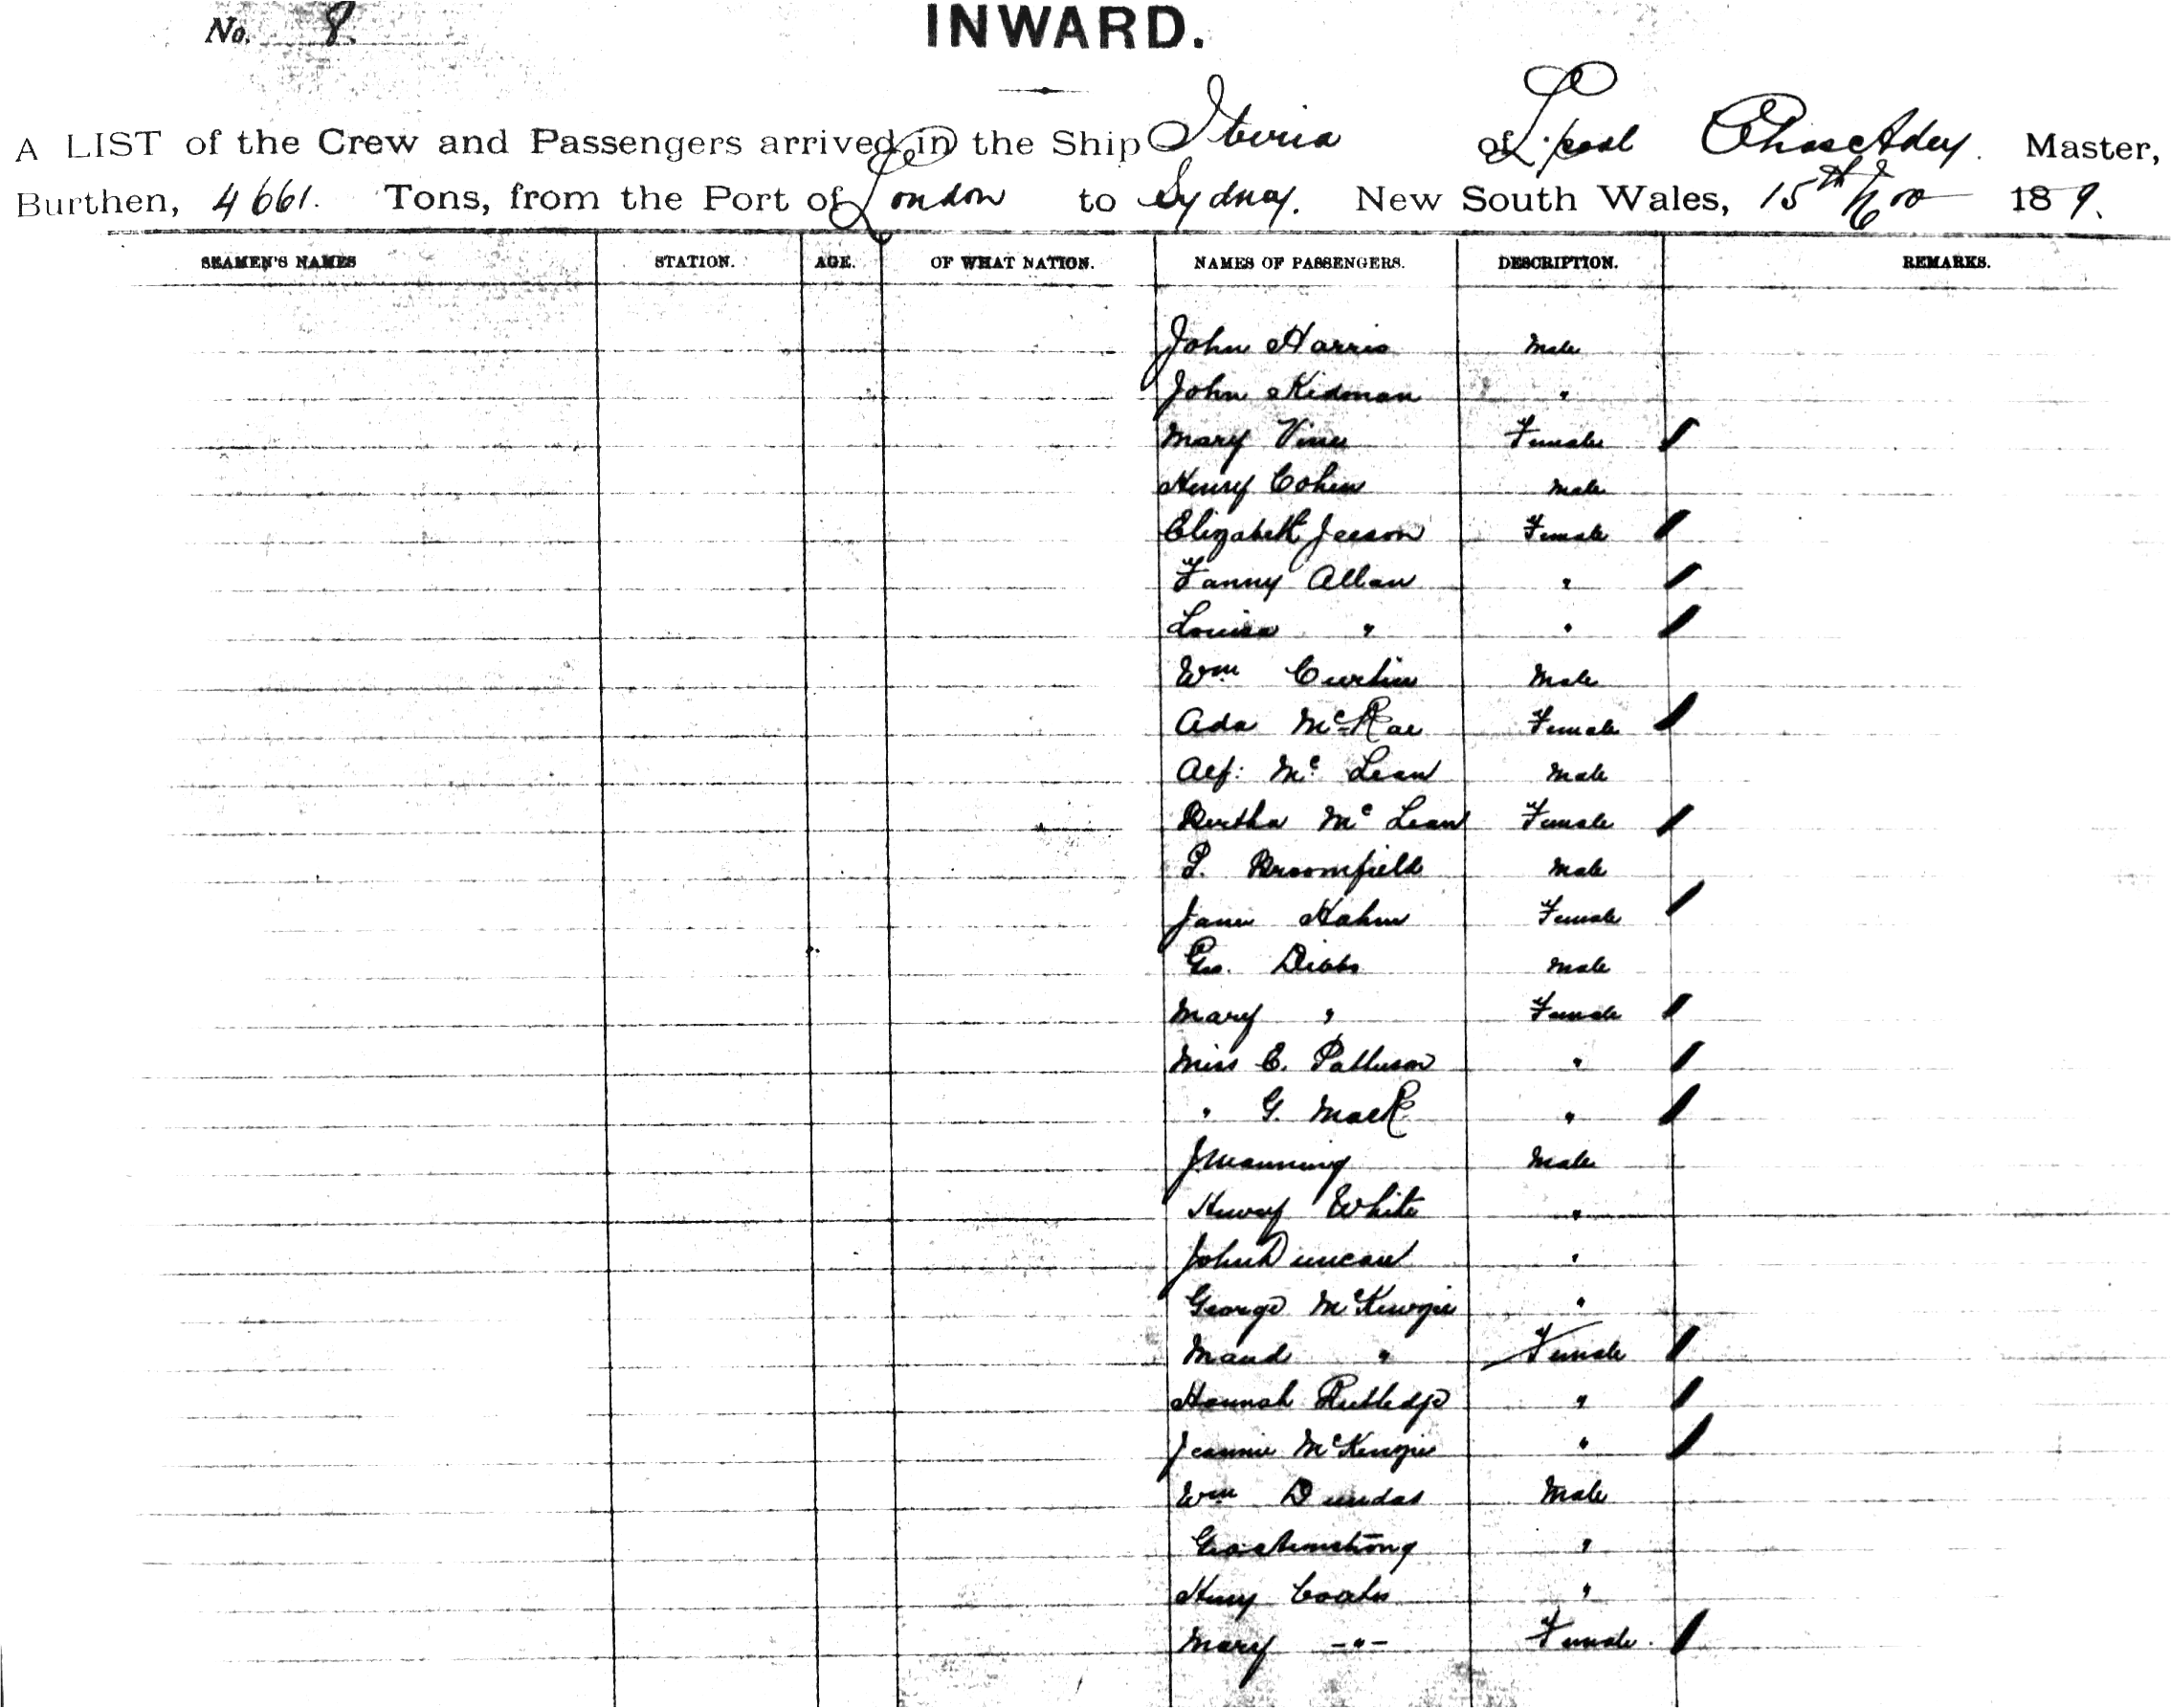 No. 8.
INWARD.
A LIST of the Crew and Passengers arrived in the Ship Iberia of L'pool Chas Adey. Master,
Burthen, 4661. Tons, from the Port of London to Sydney. New South Wales, 15th Nov 189.
SEAMEN'S NAMES STATION. AGE. OF WHAT NATION. NAMES OF PASSENGERS. DESCRIPTION. REMARKS.
John Harris Male
John Kidman "
Mary Vines Female
Henry Cohen Male
Elizabeth Jeeson Female
Fanny Allan "
Louisa " "
Wm Curtin Male
Ada McRae Female
Alf: Mc Lean Male
Bertha Mc Lean Female
P. Broomfield Male
Jane Hahn Female
Geo. Dibbs Male
Mary " Female
Miss E. Patterson "
" G. Mack "
J Manning Male
Henry White "
John Duncan "
George McKenzie "
Maud " Female
Hannah Rutledge "
Jeannie McKenzie "
Wm Dundas Male
Geo Armstrong "
Henry Coates "
Mary -"- Female.